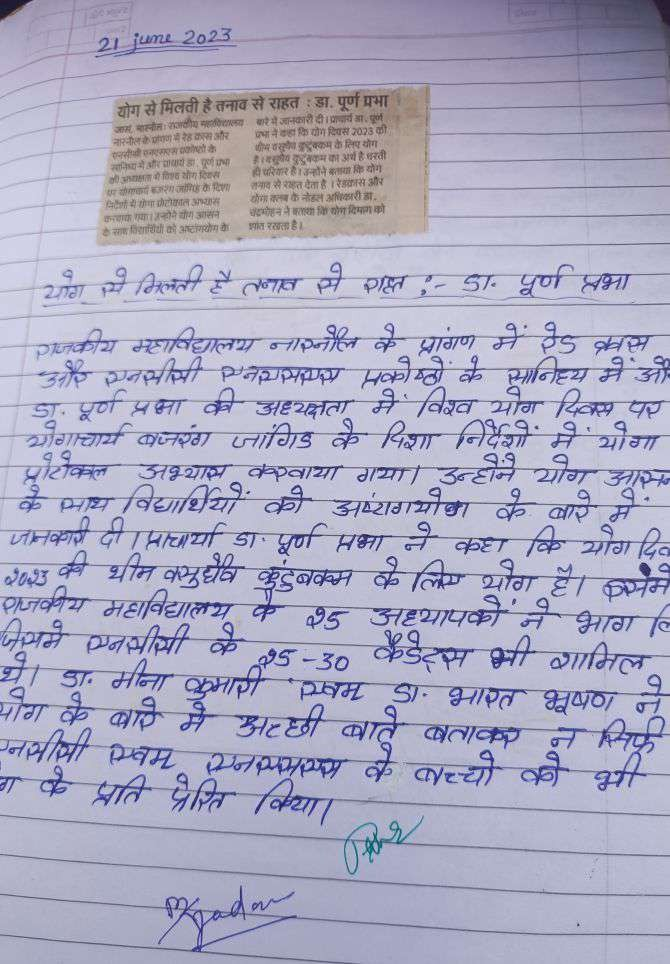 21 june 2023
योग से मिलती है तनाव से राहत : डा. पूर्ण प्रभा
जासं, नारनौल: राजकीय महाविद्यालय
नारनौल के प्रांगण में रेड क्रास और
एनसीसी एनएसएस प्रकोष्ठो के
सानिध्य में और प्राचार्य डा. पूर्ण प्रभा
की अध्यक्षता में विश्व योग दिवस
पर योगाचार्य बजरंग जांगिड़ के दिशा
निर्देशों में योगा प्रोटोकाल अभ्यास
करवाया गया। उन्होंने योग आसन
के साथ विद्यार्थियों को अष्टांगयोग के
बारे में जानकारी दी। प्राचार्य डा. पूर्ण
प्रभा ने कहा कि योग दिवस 2023 की
थीम वसुधैव कुटुंबकम के लिए योग
है। वसुधैव कुटुंबकम का अर्थ है धरती
ही परिवार है। उन्होंने बताया कि योग
तनाव से राहत देता है। रेडक्रास और
योगा क्लब के नोडल अधिकारी डा.
चंद्रमोहन ने बताया कि योग दिमाग को
शांत रखता है।
योग से मिलती है तनाव से राहत :- डा. पूर्ण प्रभा
राजकीय महाविद्यालय नारनौल के प्रांगण में रेड क्रास
और एनसीसी एनएसएस प्रकोष्ठों के सानिध्य में और
डा. पूर्ण प्रभा की अध्यक्षता में विश्व योग दिवस पर
योगाचार्य बजरंग जांगिड के दिशा निर्देशों में योगा
प्रोटोकल अभ्यास करवाया गया। उन्होंने योग आसन
के साथ विद्यार्थियों को अष्टांगयोग के बारे में
जानकारी दी। प्राचार्या डा. पूर्ण प्रभा ने कहा कि योग
2023 की थीम वसुधैव कुंटुंबकम के लिए योग है। इसमें
राजकीय महाविद्यालय के 25 अध्यापकों ने भाग
जिसमें एनसीसी के 25-30 कैडेट्स भी शामिल
थे। डा. मीना कुमारी एवम डा. भारत भूषण ने
योग के बारे में अच्छी बातें बताकर न सिर्फ
एनसीसी एवम एनएसएस के बच्चो को भी
के प्रति प्रेरित किया।